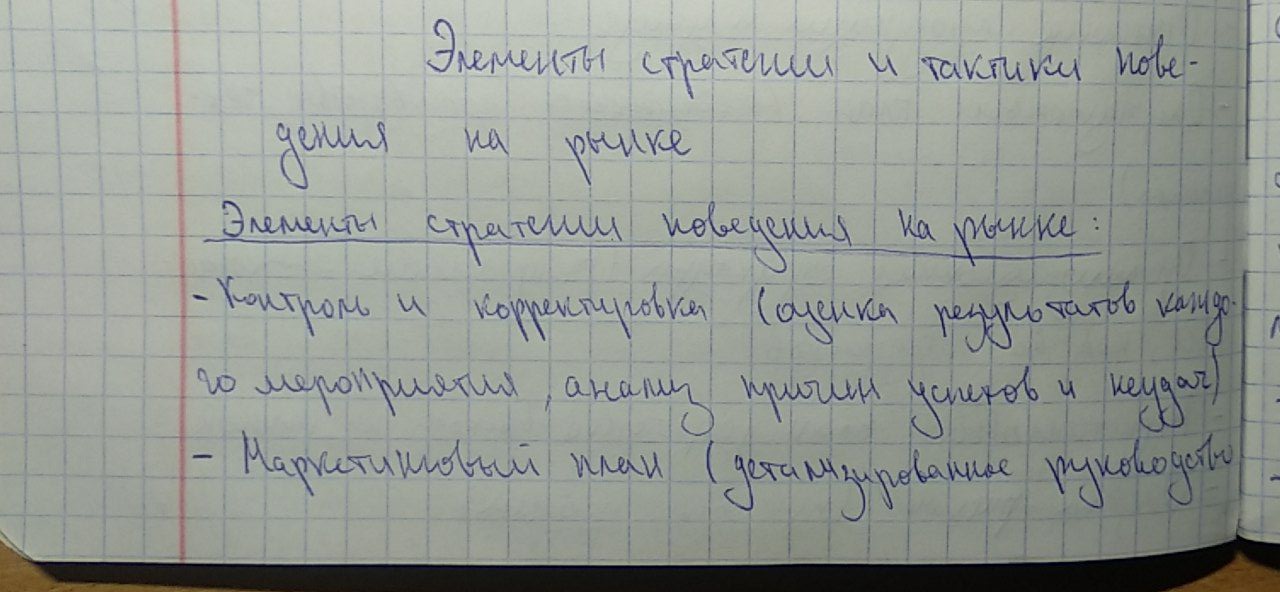 Элементы стратегии и тактики пове-
дения на рынке
Элементы стратегии поведения на рынке:
- Контроль и корректировка (оценка результатов каждо-
го мероприятия, анализ причин успехов и неудач)
- Маркетинговый план (детализированное руководство